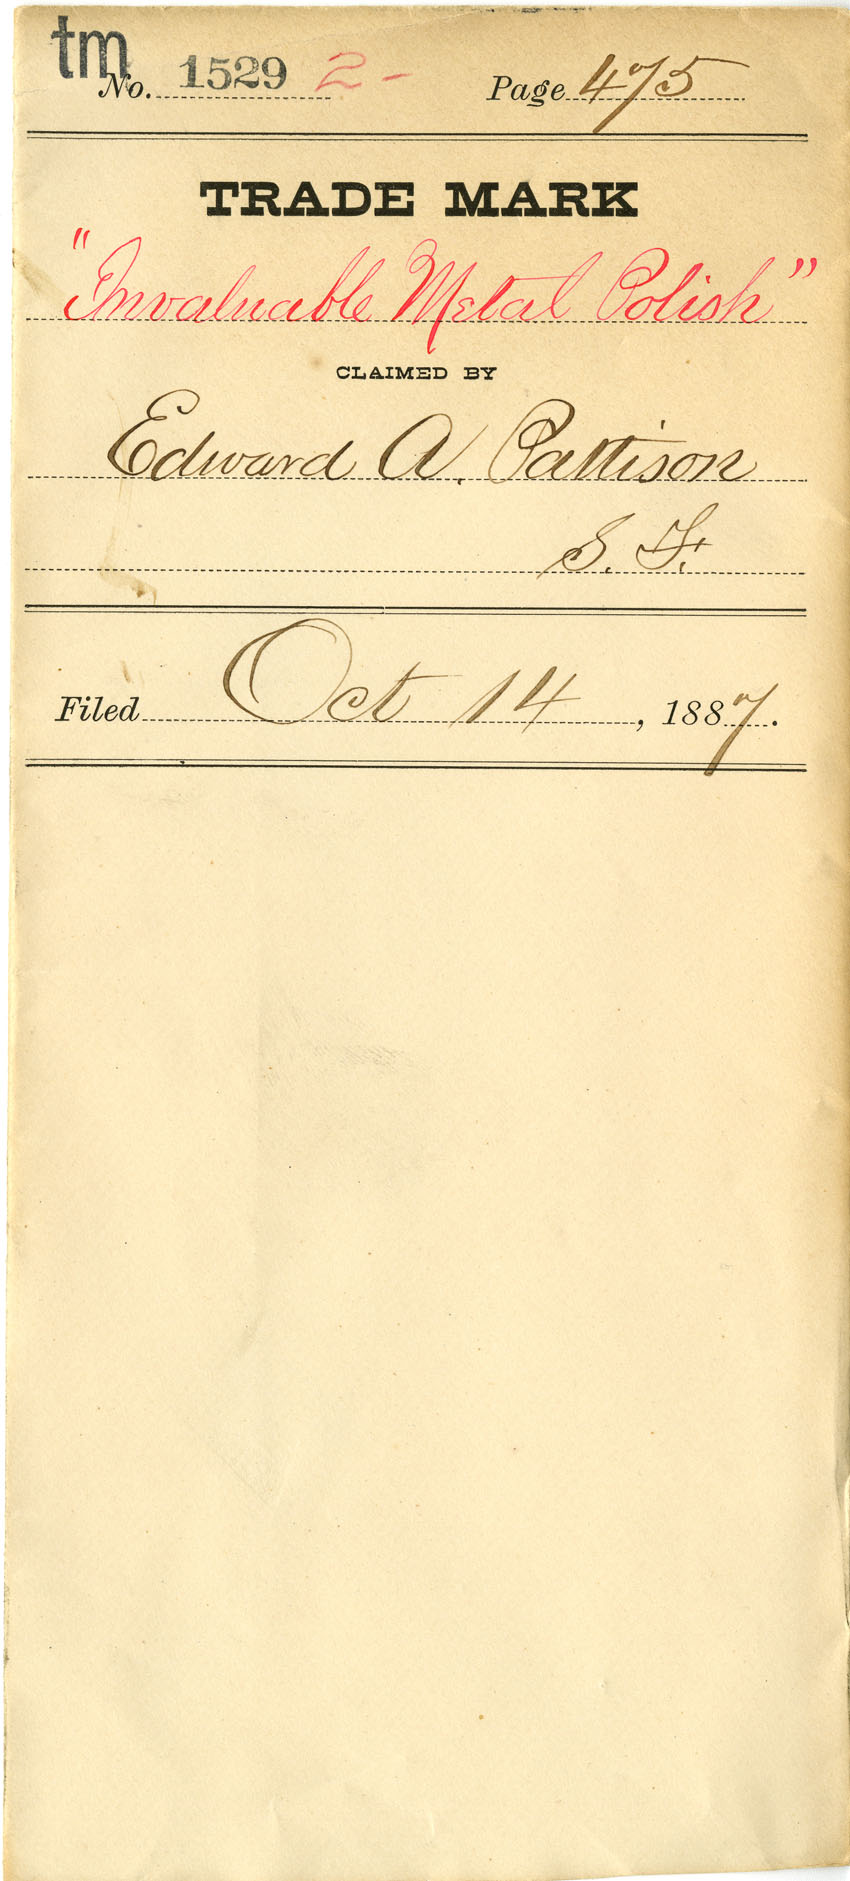 tm
No. 1529 2- Page 475
TRADE MARK
"Invaluable Metal Polish"
CLAIMED BY
Edward A. Pattison
S. F.
Filed Oct 14, 1887.